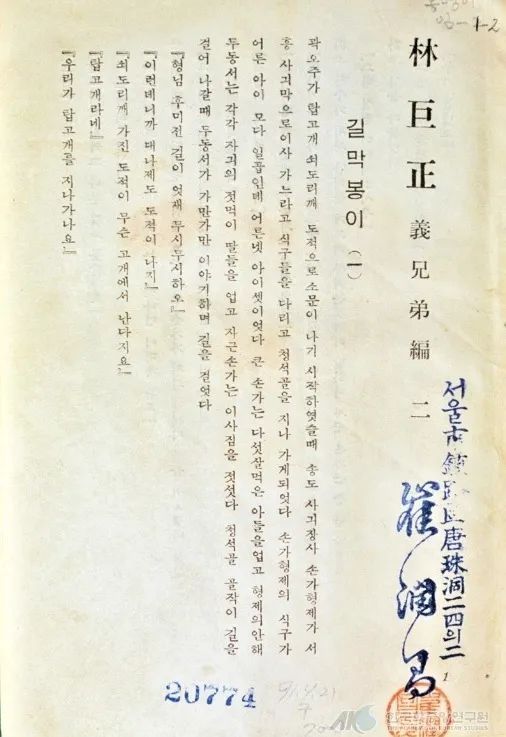 林巨正 義兄弟編 二
길막봉이 (一)
곽오주가 탑고개 쇠도리깨 도적으로소문이 나기 시작하엿슬때 송도 사긔장사 손가형제가 서
흥 사긔막으로이사 가느라고 식구들을 다리고 청석골을 지나 가게되엇다 손가형제의 식구가
어른 아이 모다 일곱인데 어른넷 아이셋이엇다 큰 손가는 다섯살먹은 아들을업고 형제의안해
두동서는 각각 자긔의 젓먹이 딸들을 업고 자근손가는 이사짐을 젓섯다 청석골 골작이 길을
걸어 나갈때 두동서가 가만가만 이야기하며 길을 걸엇다
『형님 후미전 길이 엇재 무시무시하오』
『이런데니까 대나제도 도적이 나지』
『쇠도리깨 가진 도적이 무슨 고개에서 난다지요』
『탑고개라네』
『우리가 탑고개를 지나가나요』
서울市鍾路區唐珠洞二四의二
崔
1
20774
한국학중앙연구원
THE ACADEMY OF KOREAN STUDIES